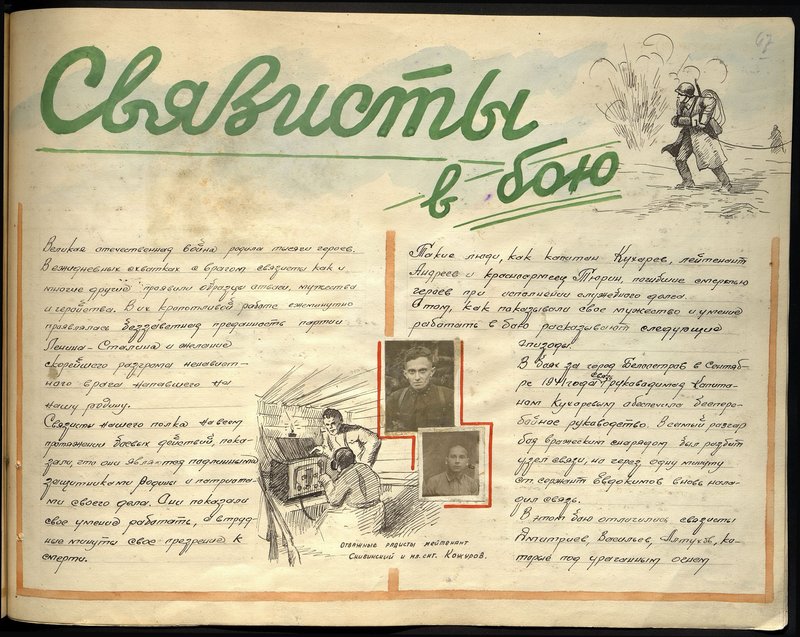 Связисты
в бою
67
Великая отечественная война родила тысячи героев.
В ежидневных схватках с врагом связисты как и
многие другие проявили образцы отваги, мужества
и геройства. В их кропотливой работе ежеминутно
проявлялась беззаветная преданность партии
Ленина-Сталина и желание
скорейшего разгрома ненавист-
ного врага напавшего на
нашу родину.
Связисты нашего полка на всем
протяжении боевых действий, пока-
зали, что они являются подлинными
защитниками Родины и патриота-
ми своего дела. Они показали
свое умение работать, а в труд-
ные минуты свое презрение к
смерти.
Отважные радисты лейтенант
Скивинский и мл. сжт. Кожуров.
Такие люди, как капитан Кухарев, лейтенант
Андреев и красноармеец Тюрин, погибшие смертью
героев при исполнении служебного долга.
О том, как показывали свое мужество и умение
работать в бою расказывают следующие
эпизоды.
В боях за город Белоостров в Сентяб-
ре 1941 года связь руководимая капита-
ном Кухаревым обеспечила беспере-
бойное руководство. В самый разгар
боя вражеским снарядом был разбит
узел связи, но через одну минуту
ст. сержант Евдокимов вновь нала-
дил связь.
В этом бою отличились связисты
Дмитриев, Васильев, ка-
торые под ураганным огнем